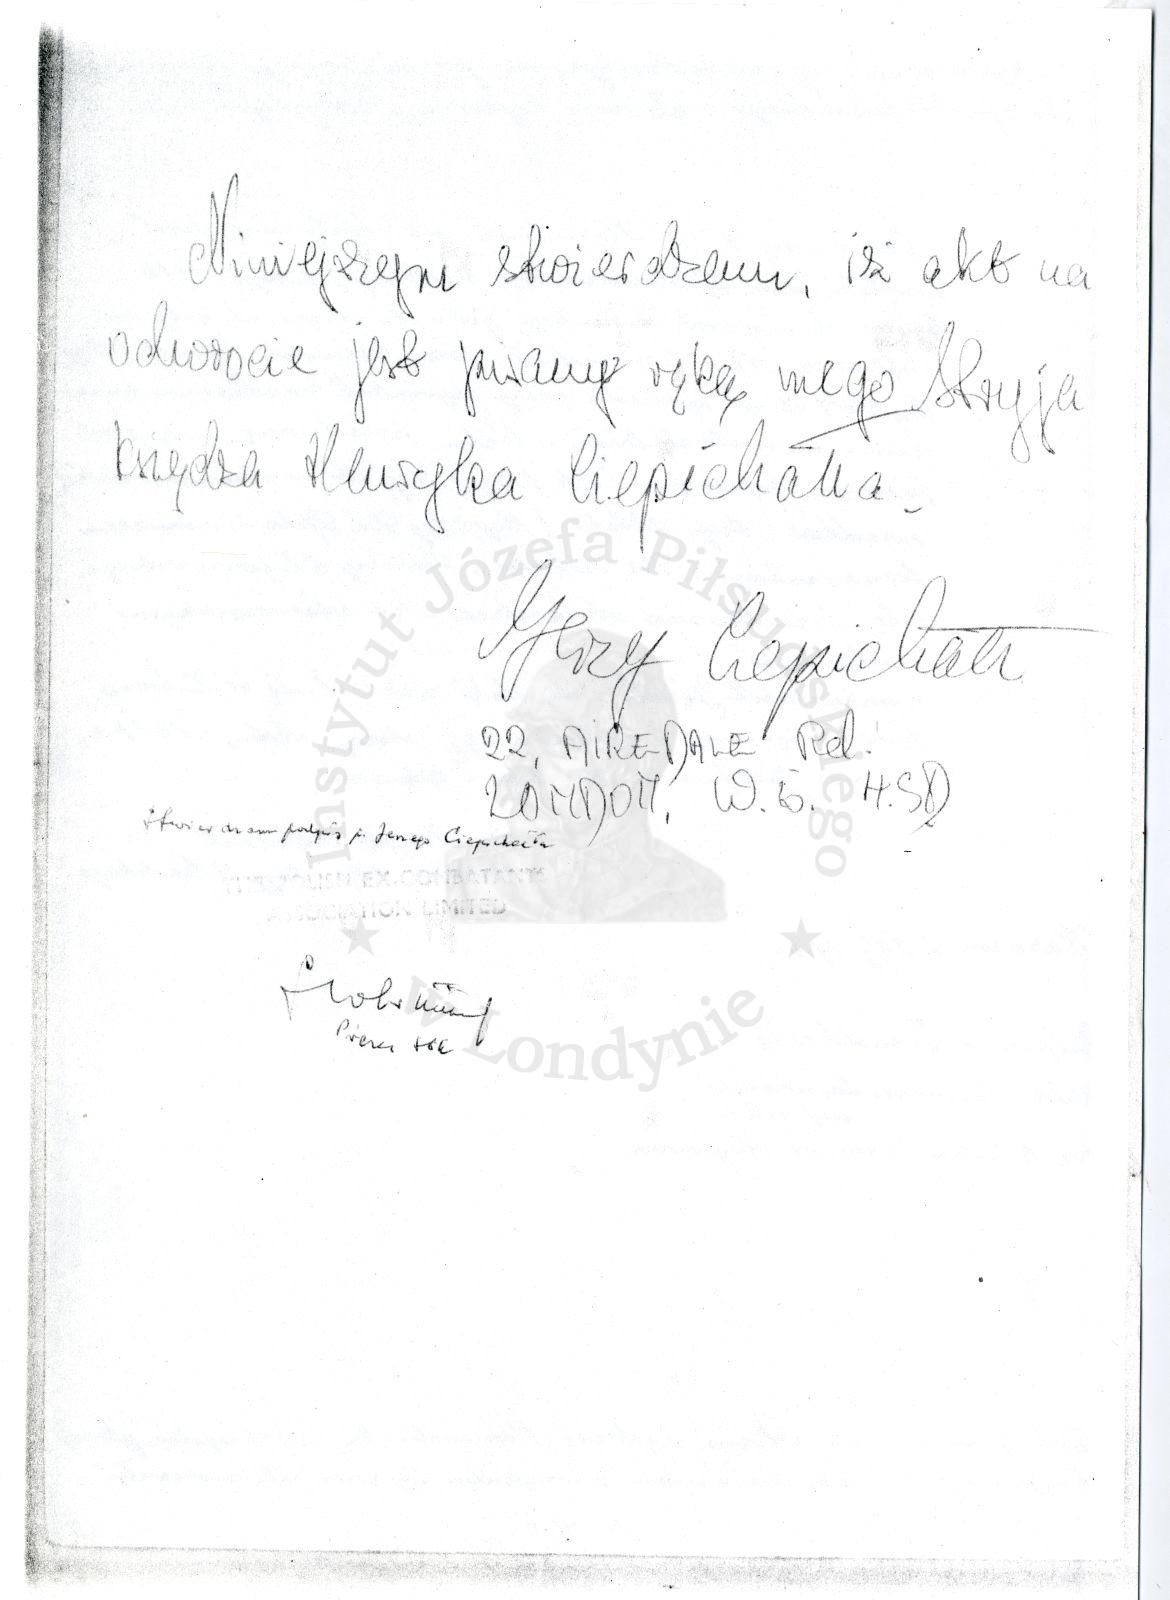 Niniejszym stwierdzam, iż akt na
odwrocie jest pisany ręką mego Stryja
księdza Henryka Ciepichałła.
Jerzy Ciepichałł
22, AIREDALE Rd.
LONDON, W.5. 4.SD
stwierdzam podpis p. Jerzego Ciepichałła
THE POLISH EX-COMBATANTS
ASSOCIATION LIMITED
Prezes
Instytut Józefa Piłsudskiego
w Londynie